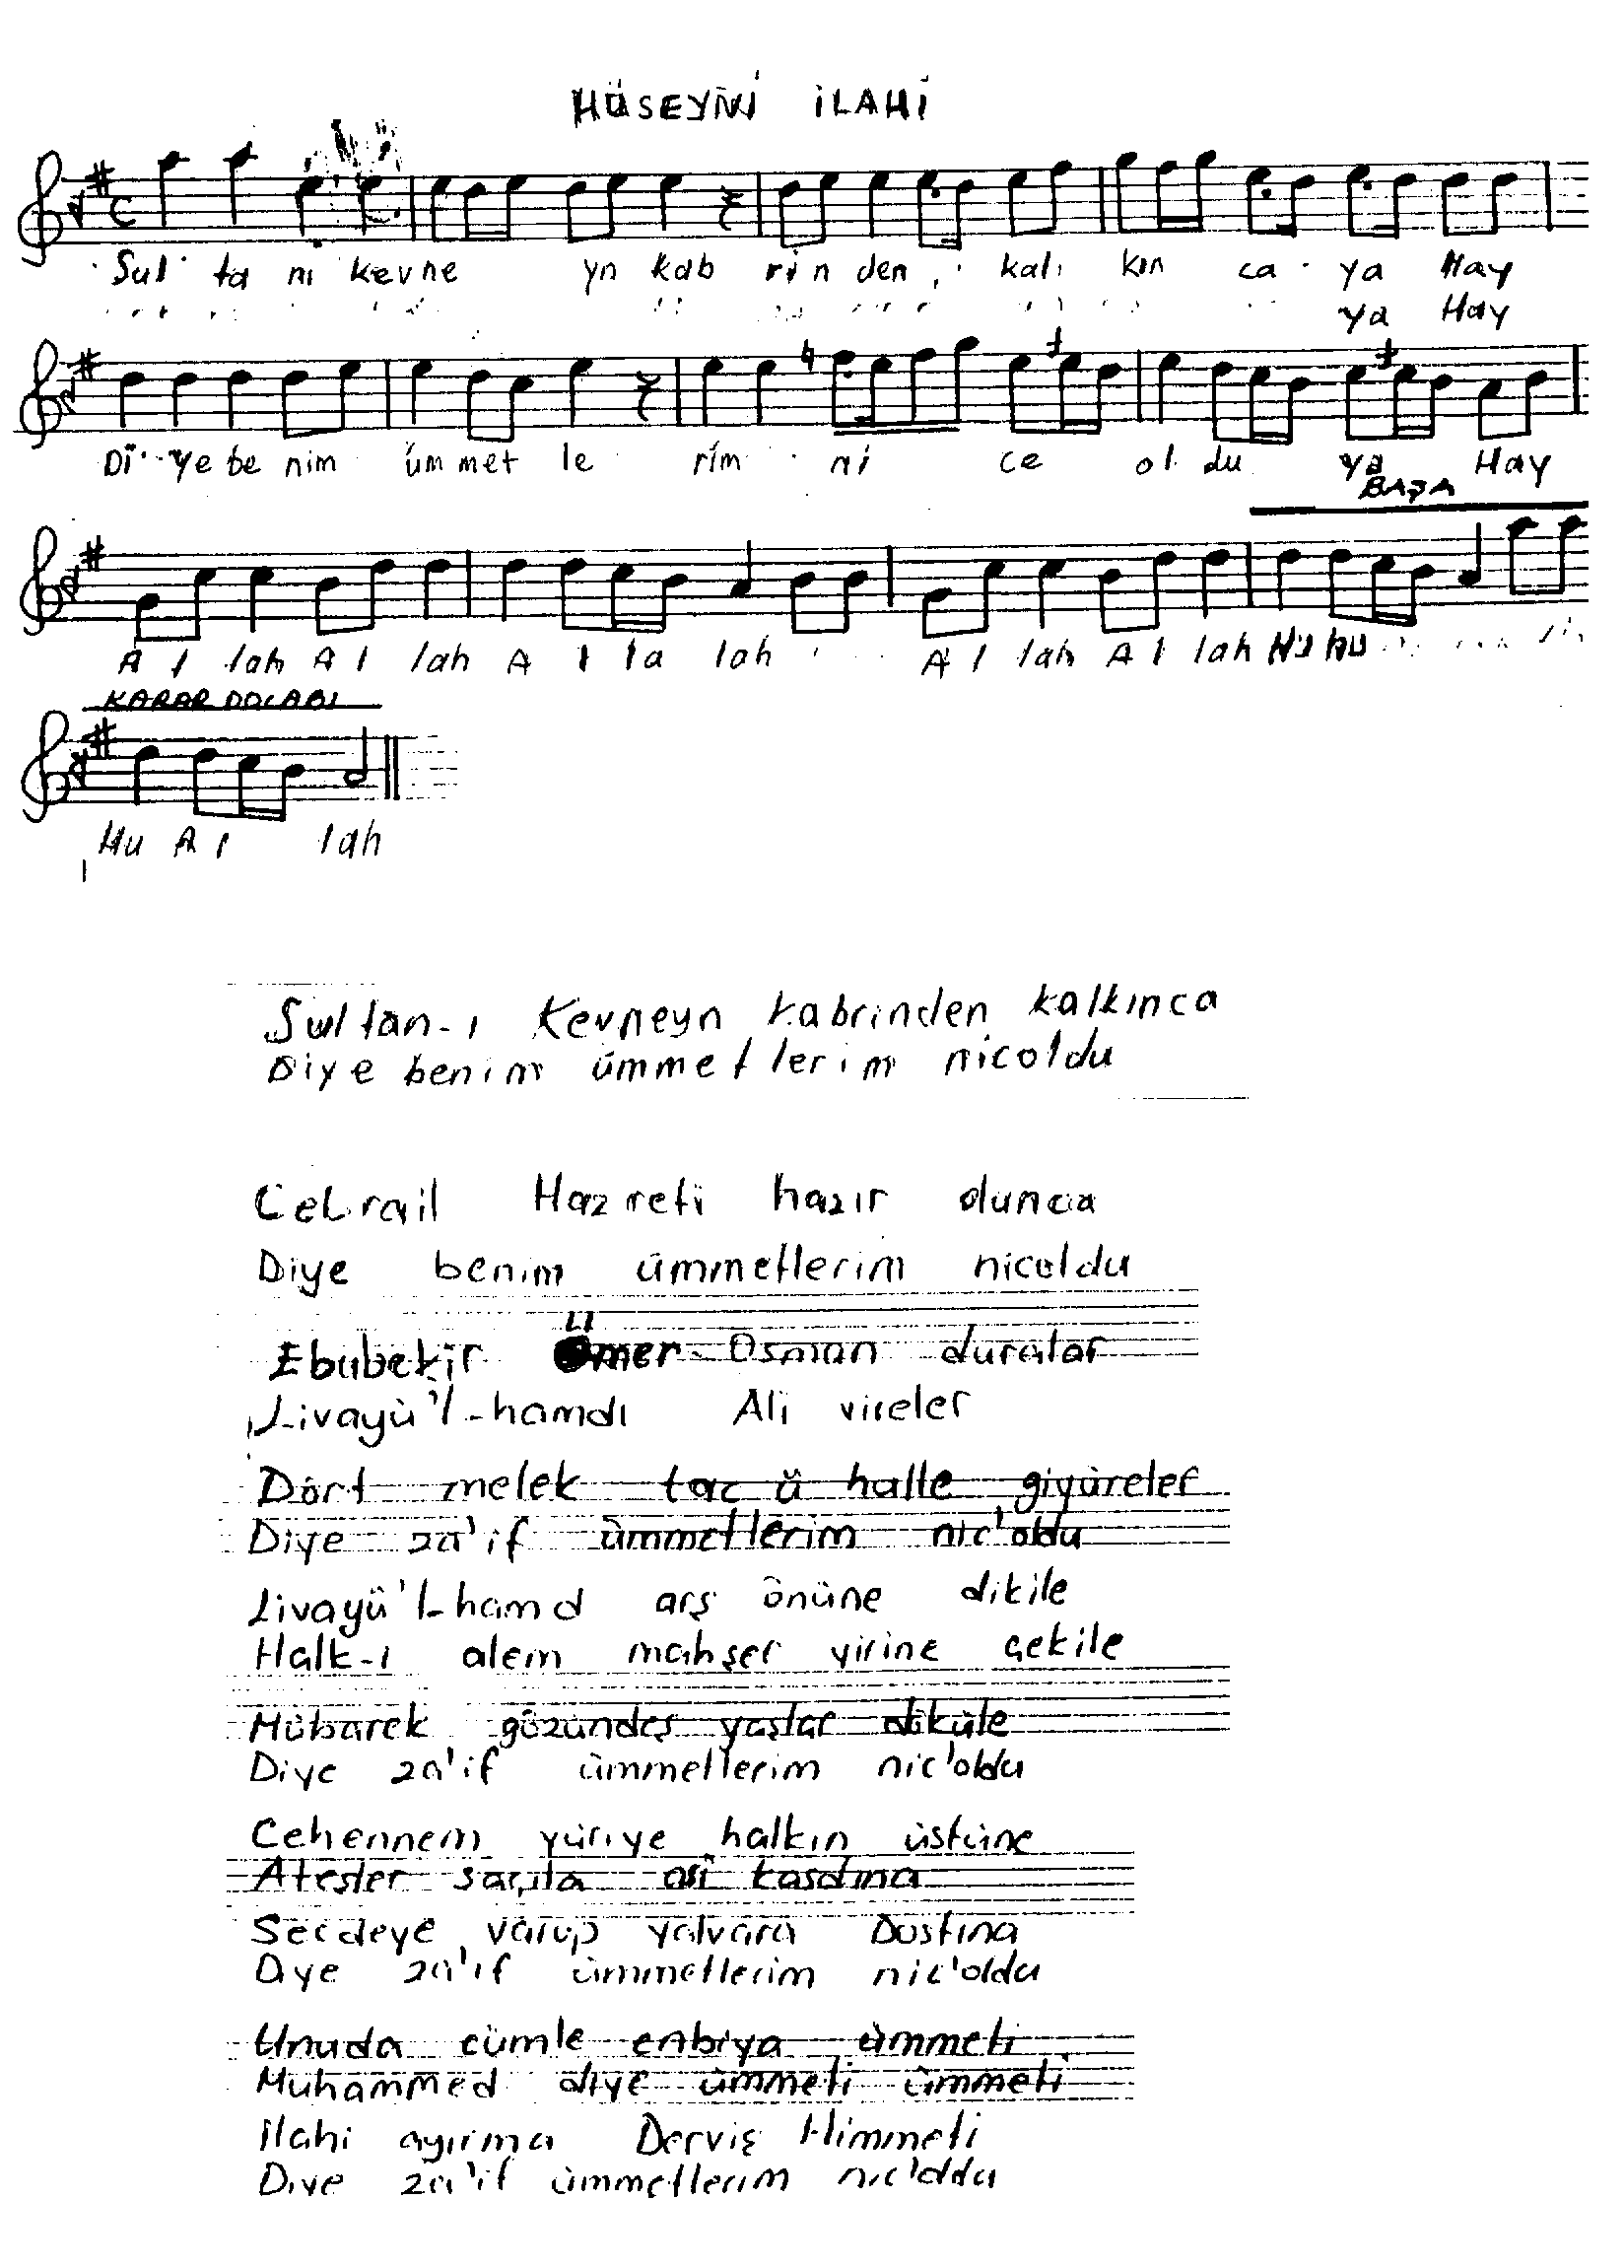 HÜSEYNİ İLAHİ
Sul ta nı kevne yn kab rin den kalı kın ca ya Hay
ya Hay
Di ye be nim üm met le rim ni ce ol du ya Hay
BAŞA
A l lah A l lah A l la lah A l lah A l lah Hu hu
KARAR DOLABI
Hu A l lah
Sultan-ı Kevneyn kabrinden kalkınca
Diye benim ümmetlerim nicoldu
Cebrail Hazreti hazır olunca
Diye benim ümmetlerim nicoldu
Ebubekir Ümer Osman duralar
Livayü'l-hamdı Ali vireler
Dört melek tac ü halle giyüreler
Diye za'if ümmetlerim nic'oldu
Livayü'l-hamd arş önüne dikile
Halk-ı alem mahşer yirine çekile
Mübarek gözünden yaşlar döküle
Diye za'if ümmetlerim nic'oldu
Cehennem yüriye halkın üstüne
Ateşler saçıla asi kasdına
Secdeye varup yalvara Dostına
Diye za'if ümmetlerim nic'oldu
Unuda cümle enbiya ümmeti
Muhammed diye ümmeti ümmeti
İlahi ayırma Derviş Himmeti
Diye za'if ümmetlerim nic'oldu